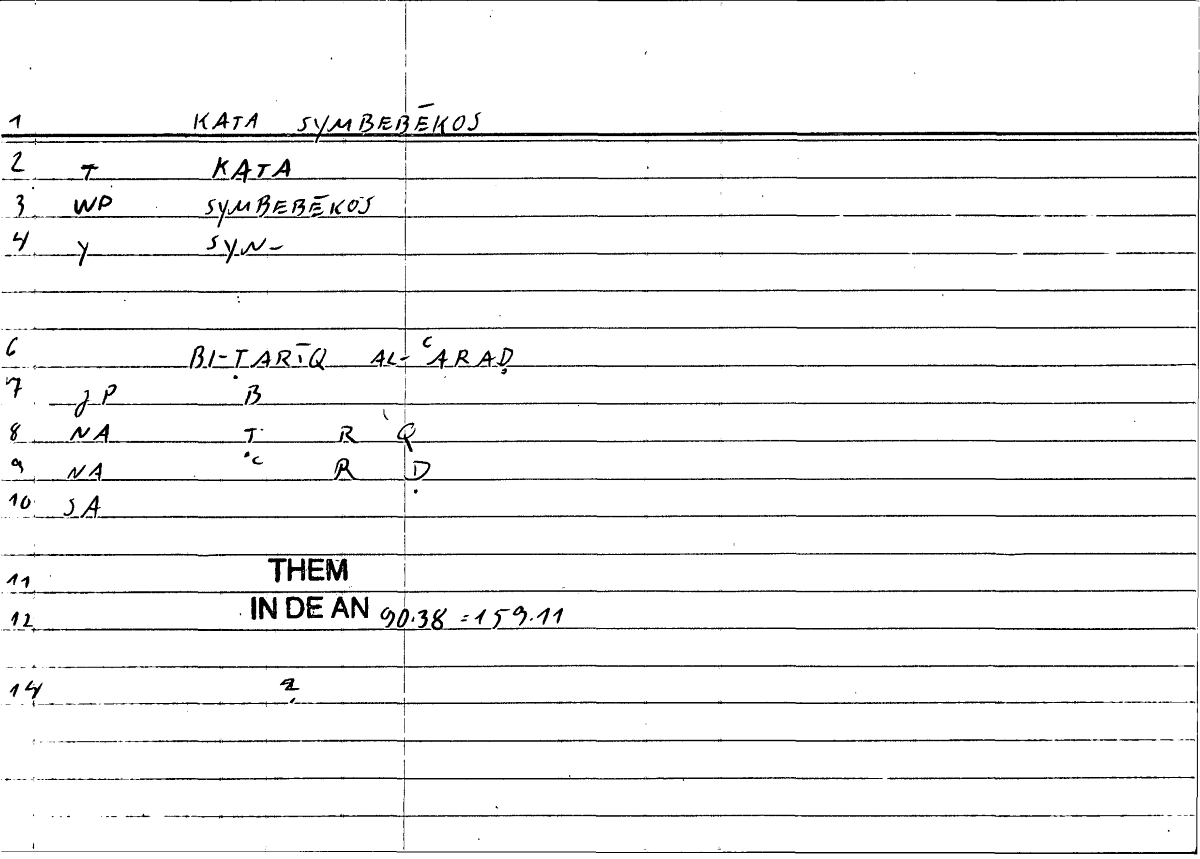 1 KATA SYMBEBĒKOS
2 T KATA
3 WP SYMBEBĒKOS
4 Y SYN-
6 BI-ṬARĪQ AL-ʿARAḌ
7 JP B
8 NA Ṭ R Q
9 NA ʿ R Ḍ
10 SA
11 THEM
12 IN DE AN 90.38 = 159.11
14